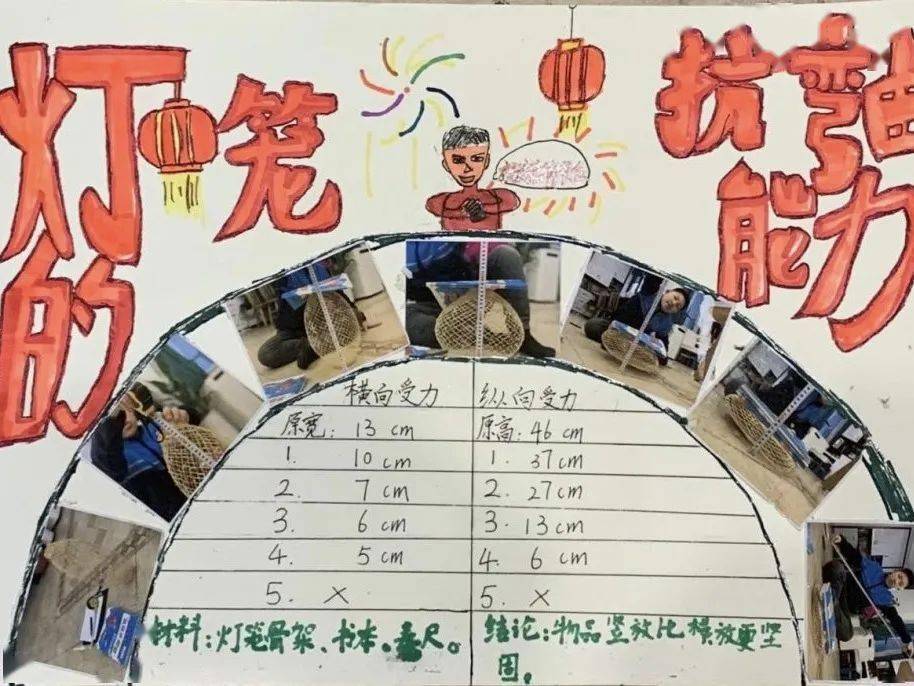 灯笼
的
抗弯曲
能力
横向受力
原宽: 13 cm
1. 10 cm
2. 7 cm
3. 6 cm
4. 5 cm
5. ×
纵向受力
原高: 46 cm
1. 37 cm
2. 27 cm
3. 13 cm
4. 6 cm
5. ×
材料:灯笼骨架、书本。尺。
结论:物品竖放比横放更坚
固。